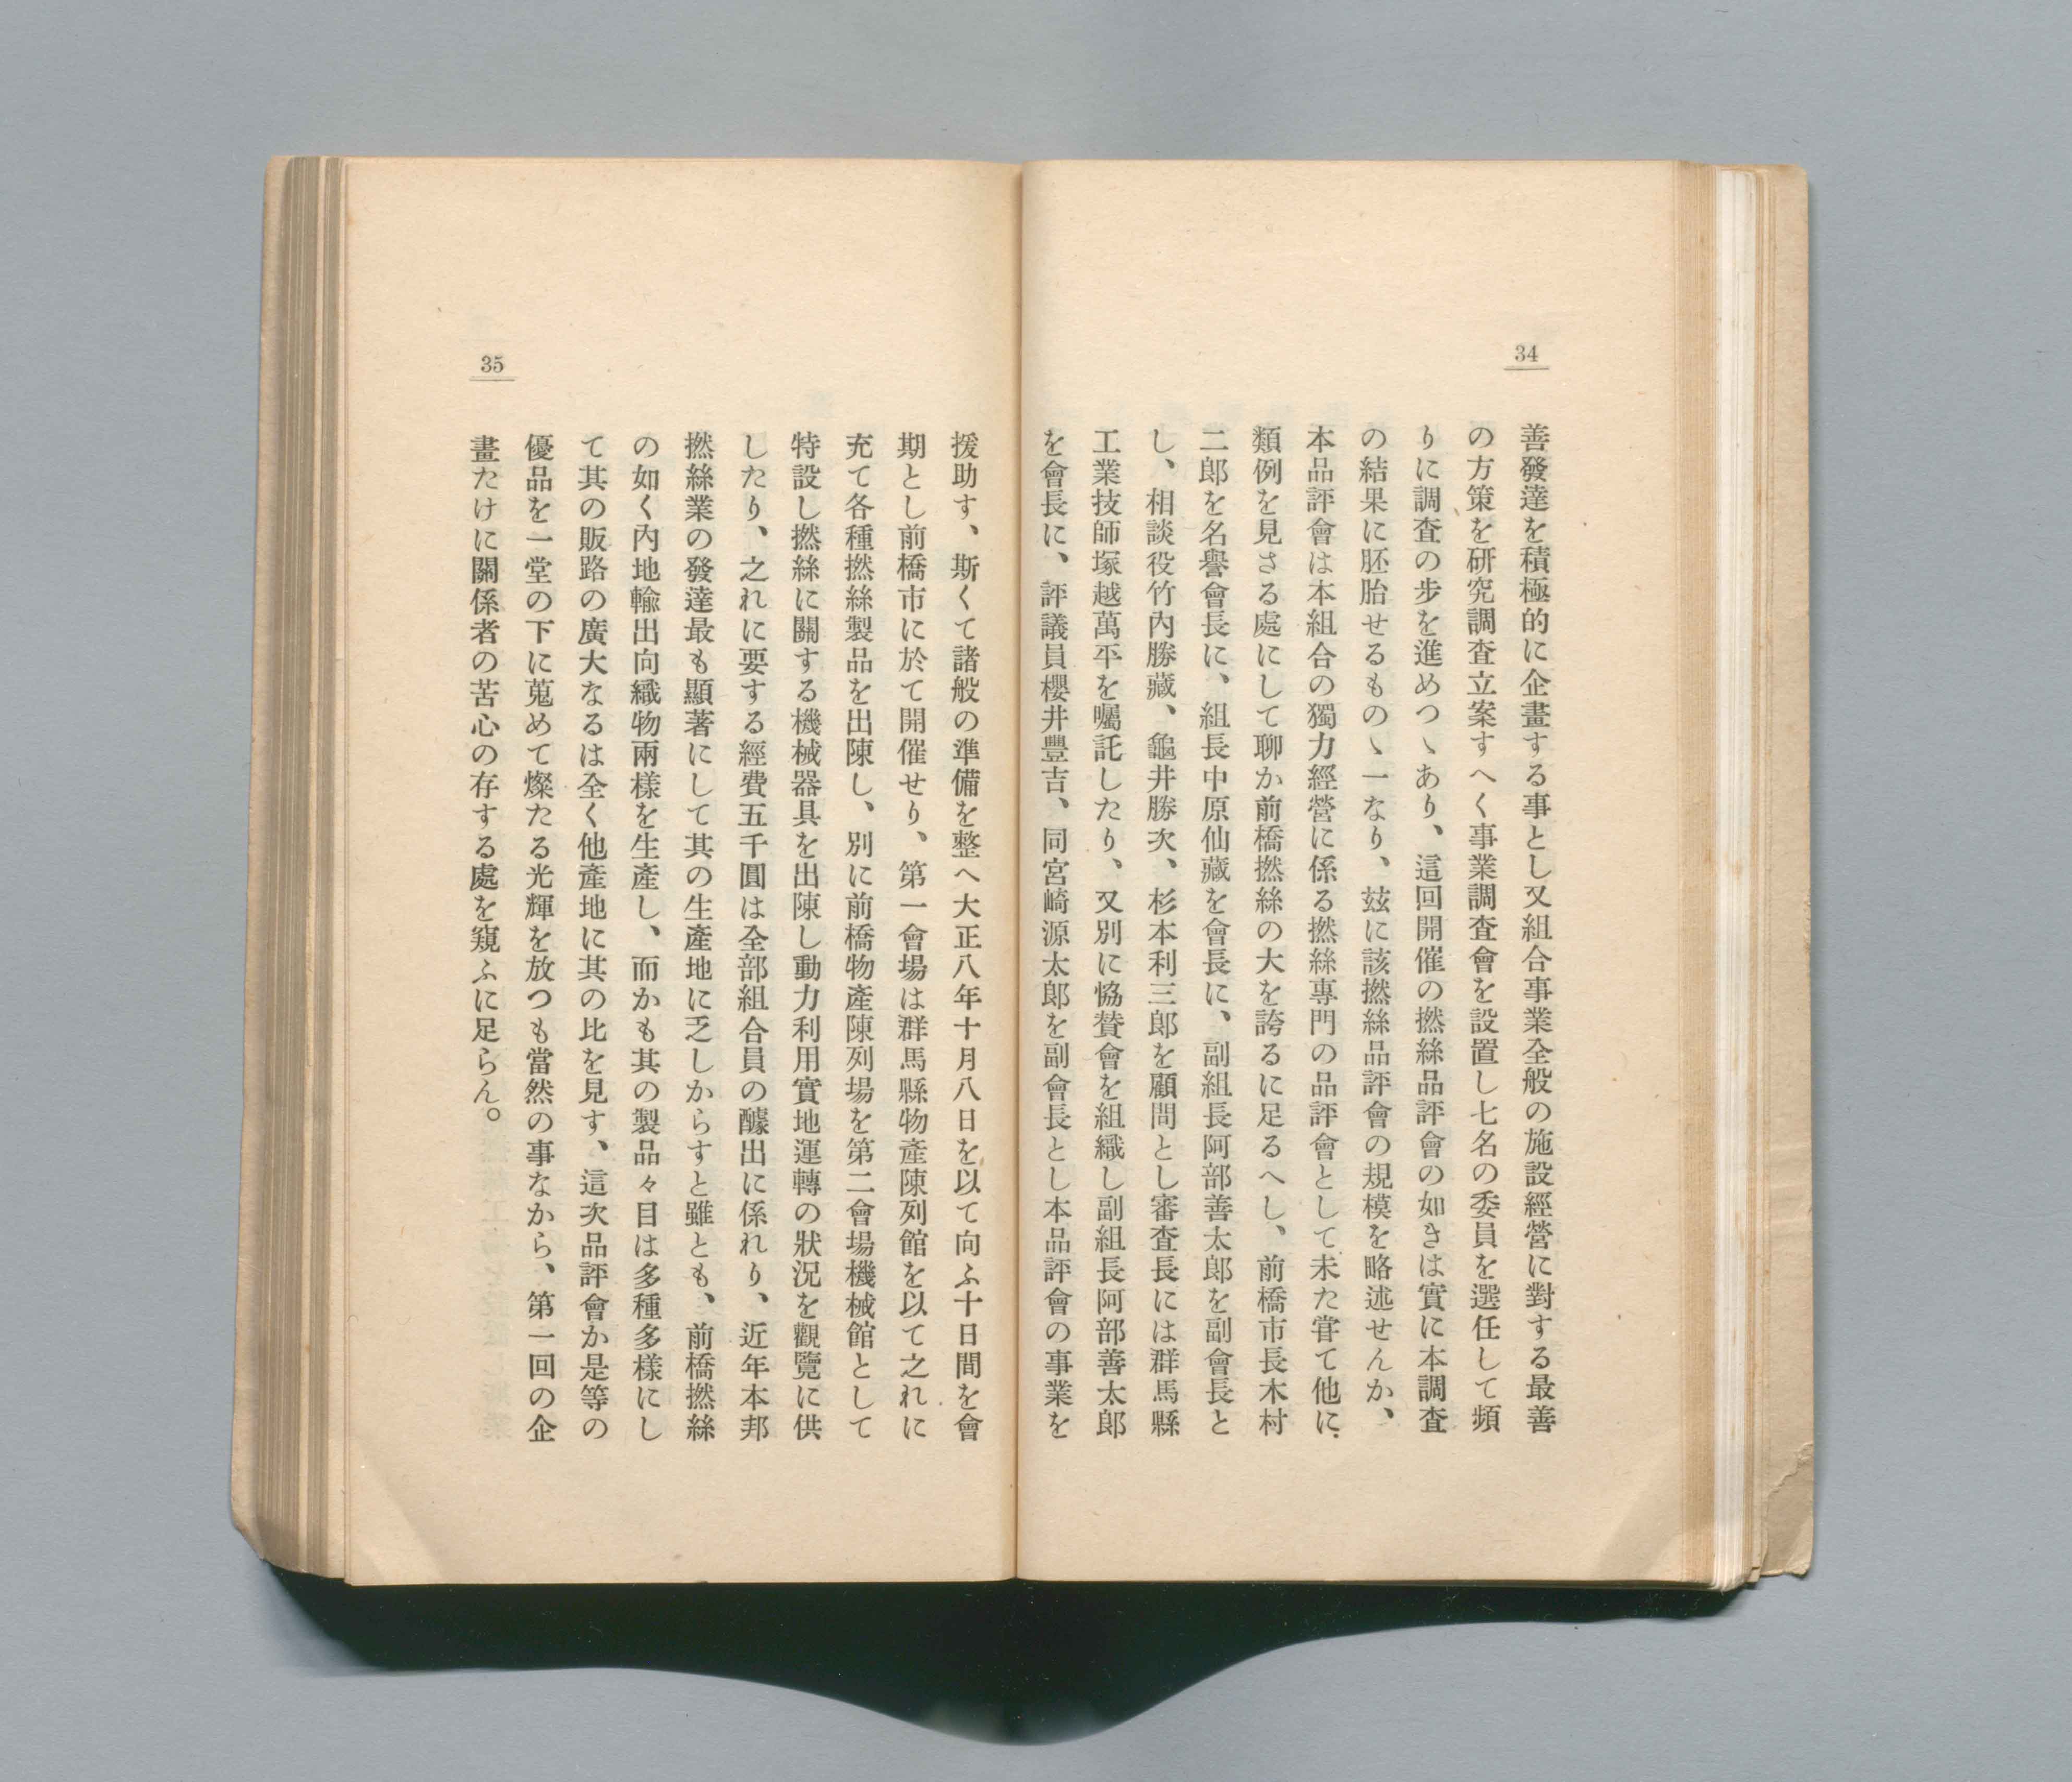 34
善發達を積極的に企畫する事とし又組合事業全般の施設經營に對する最善
の方策を研究調査立案すへく事業調査會を設置し七名の委員を選任して頻
りに調査の步を進めつゝあり、這回開催の撚絲品評會の如きは實に本調査
の結果に胚胎せるものゝ一なり、玆に該撚絲品評會の規模を略述せんか、
本品評會は本組合の獨力經營に係る撚絲專門の品評會として未た甞て他に
類例を見さる處にして聊か前橋撚絲の大を誇るに足るへし、前橋市長木村
二郞を名譽會長に、組長中原仙藏を會長に、副組長阿部善太郞を副會長と
し、相談役竹內勝藏、龜井勝次、杉本利三郞を顧問とし審査長には群馬縣
工業技師塚越萬平を囑託したり、又別に恊贊會を組織し副組長阿部善太郞
を會長に、評議員櫻井豐吉、同宮崎源太郞を副會長とし本品評會の事業を
35
援助す、斯くて諸般の準備を整へ大正八年十月八日を以て向ふ十日間を會
期とし前橋市に於て開催せり、第一會場は群馬縣物產陳列館を以て之れに
充て各種撚絲製品を出陳し、別に前橋物產陳列場を第二會場機械館として
特設し撚絲に關する機械器具を出陳し動力利用實地運轉の狀況を觀覽に供
したり、之れに要する經費五千圓は全部組合員の醵出に係れり、近年本邦
撚絲業の發達最も顯著にして其の生產地に乏しからすと雖とも、前橋撚絲
の如く內地輸出向織物兩樣を生產し、而かも其の製品々目は多種多樣にし
て其の販路の廣大なるは全く他產地に其の比を見す、這次品評會か是等の
優品を一堂の下に蒐めて燦たる光輝を放つも當然の事なから、第一回の企
畫たけに關係者の苦心の存する處を窺ふに足らん。